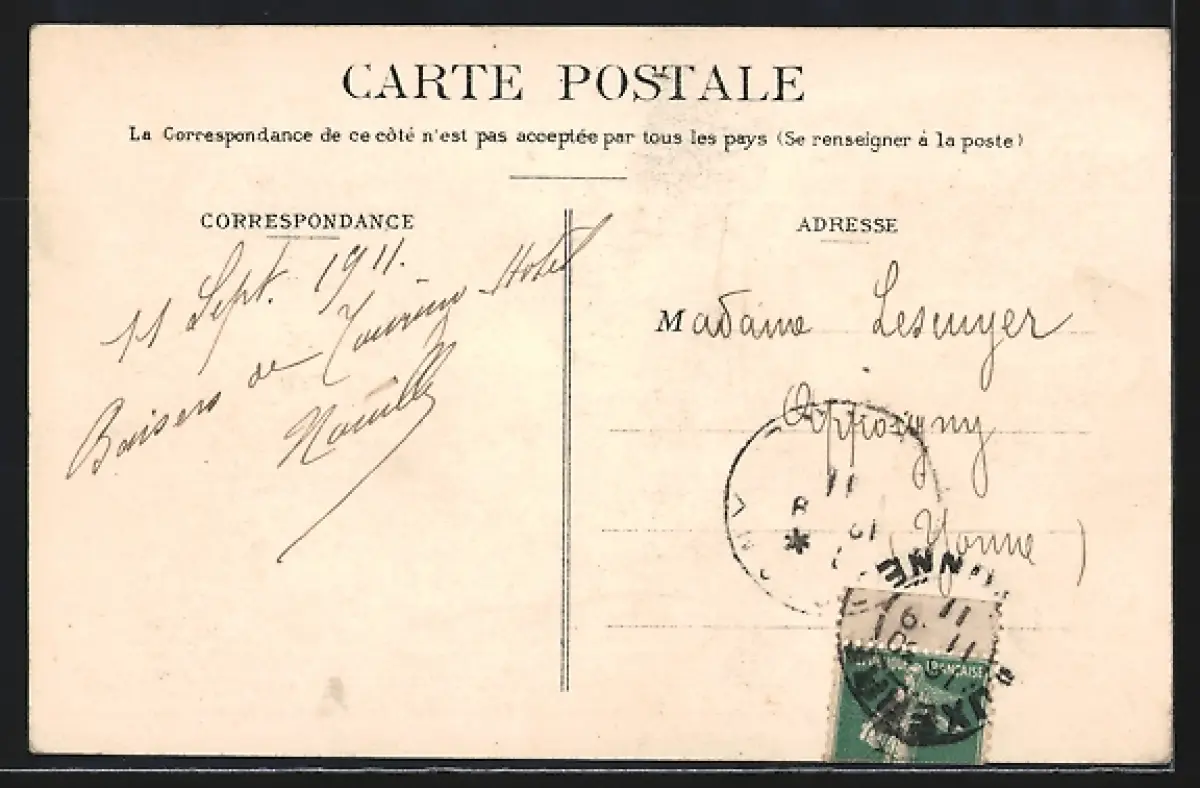 CARTE POSTALE
La Correspondance de ce côté n'est pas acceptée par tous les pays (Se renseigner à la poste)
CORRESPONDANCE
11 Sept. 1911.
Baisers de Touring-Hotel
ADRESSE
Madame Lescuyer
Appoigny
(Yonne)
YONNE
11
FRANÇAISE